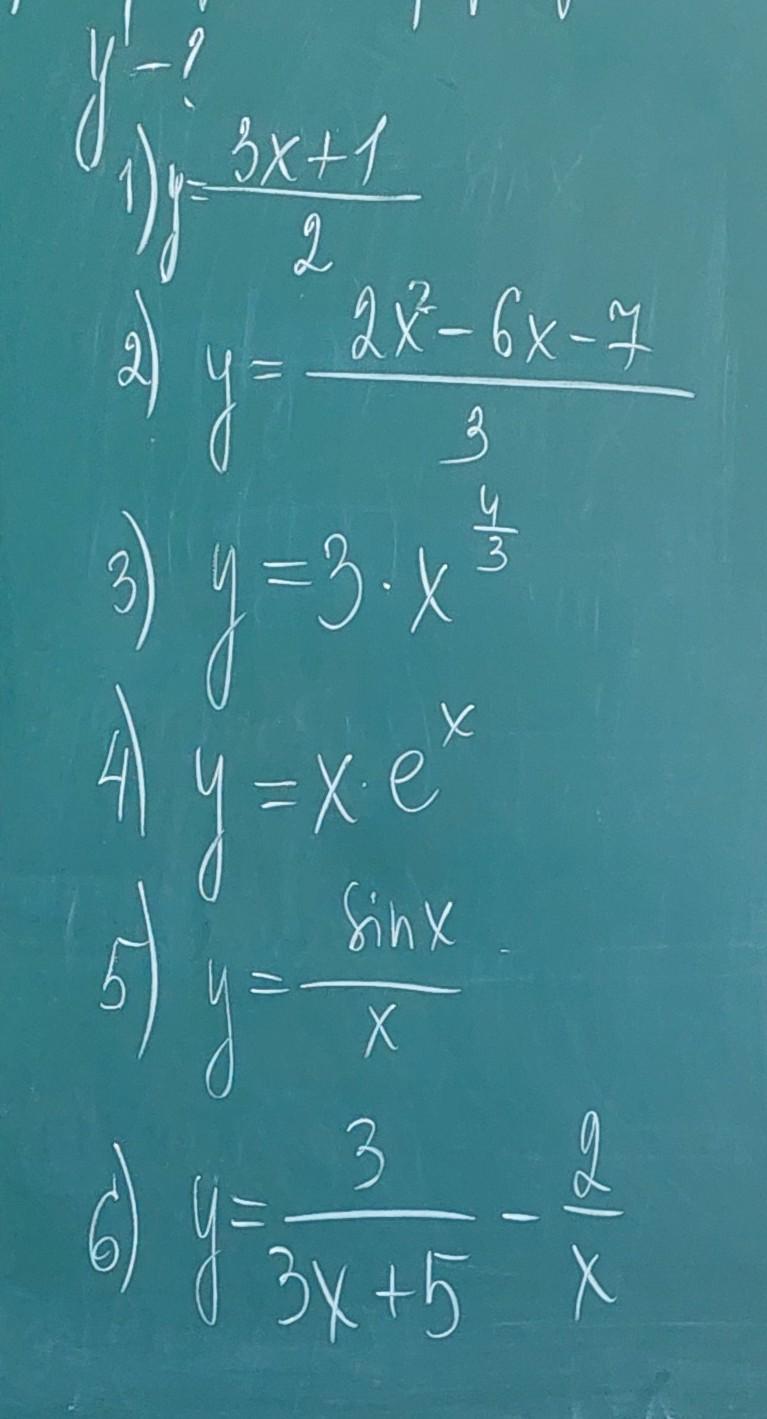 y' - ?
1) y = 3x+1 / 2
2) y = 2x² - 6x - 7 / 3
3) y = 3 · x^(4/3)
4) y = x · e^x
5) y = sin x / x
6) y = 3 / 3x+5 - 2 / x